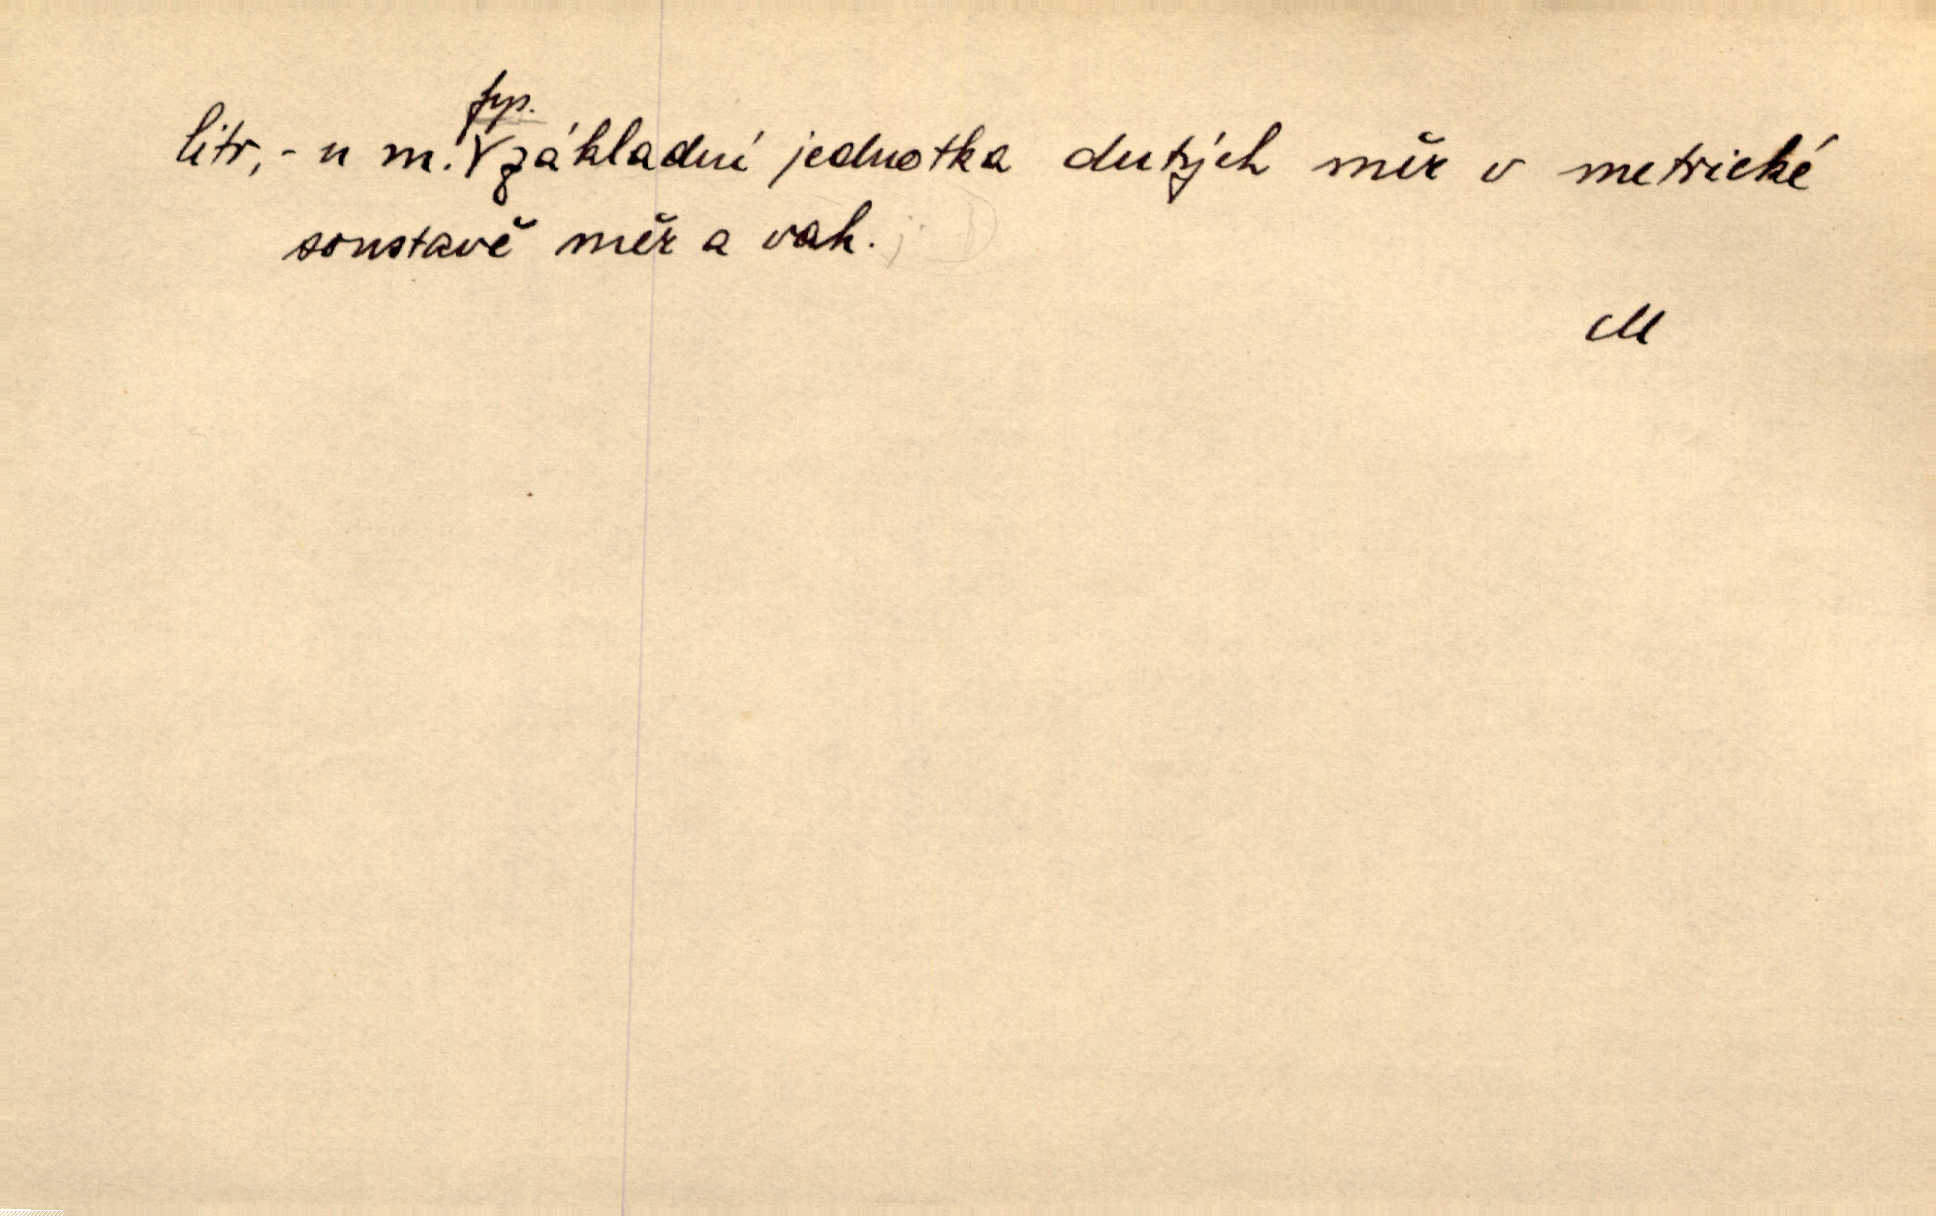 litr, -u m. fys. základní jednotka dutých měr v metrické
soustavě měr a vah.
M